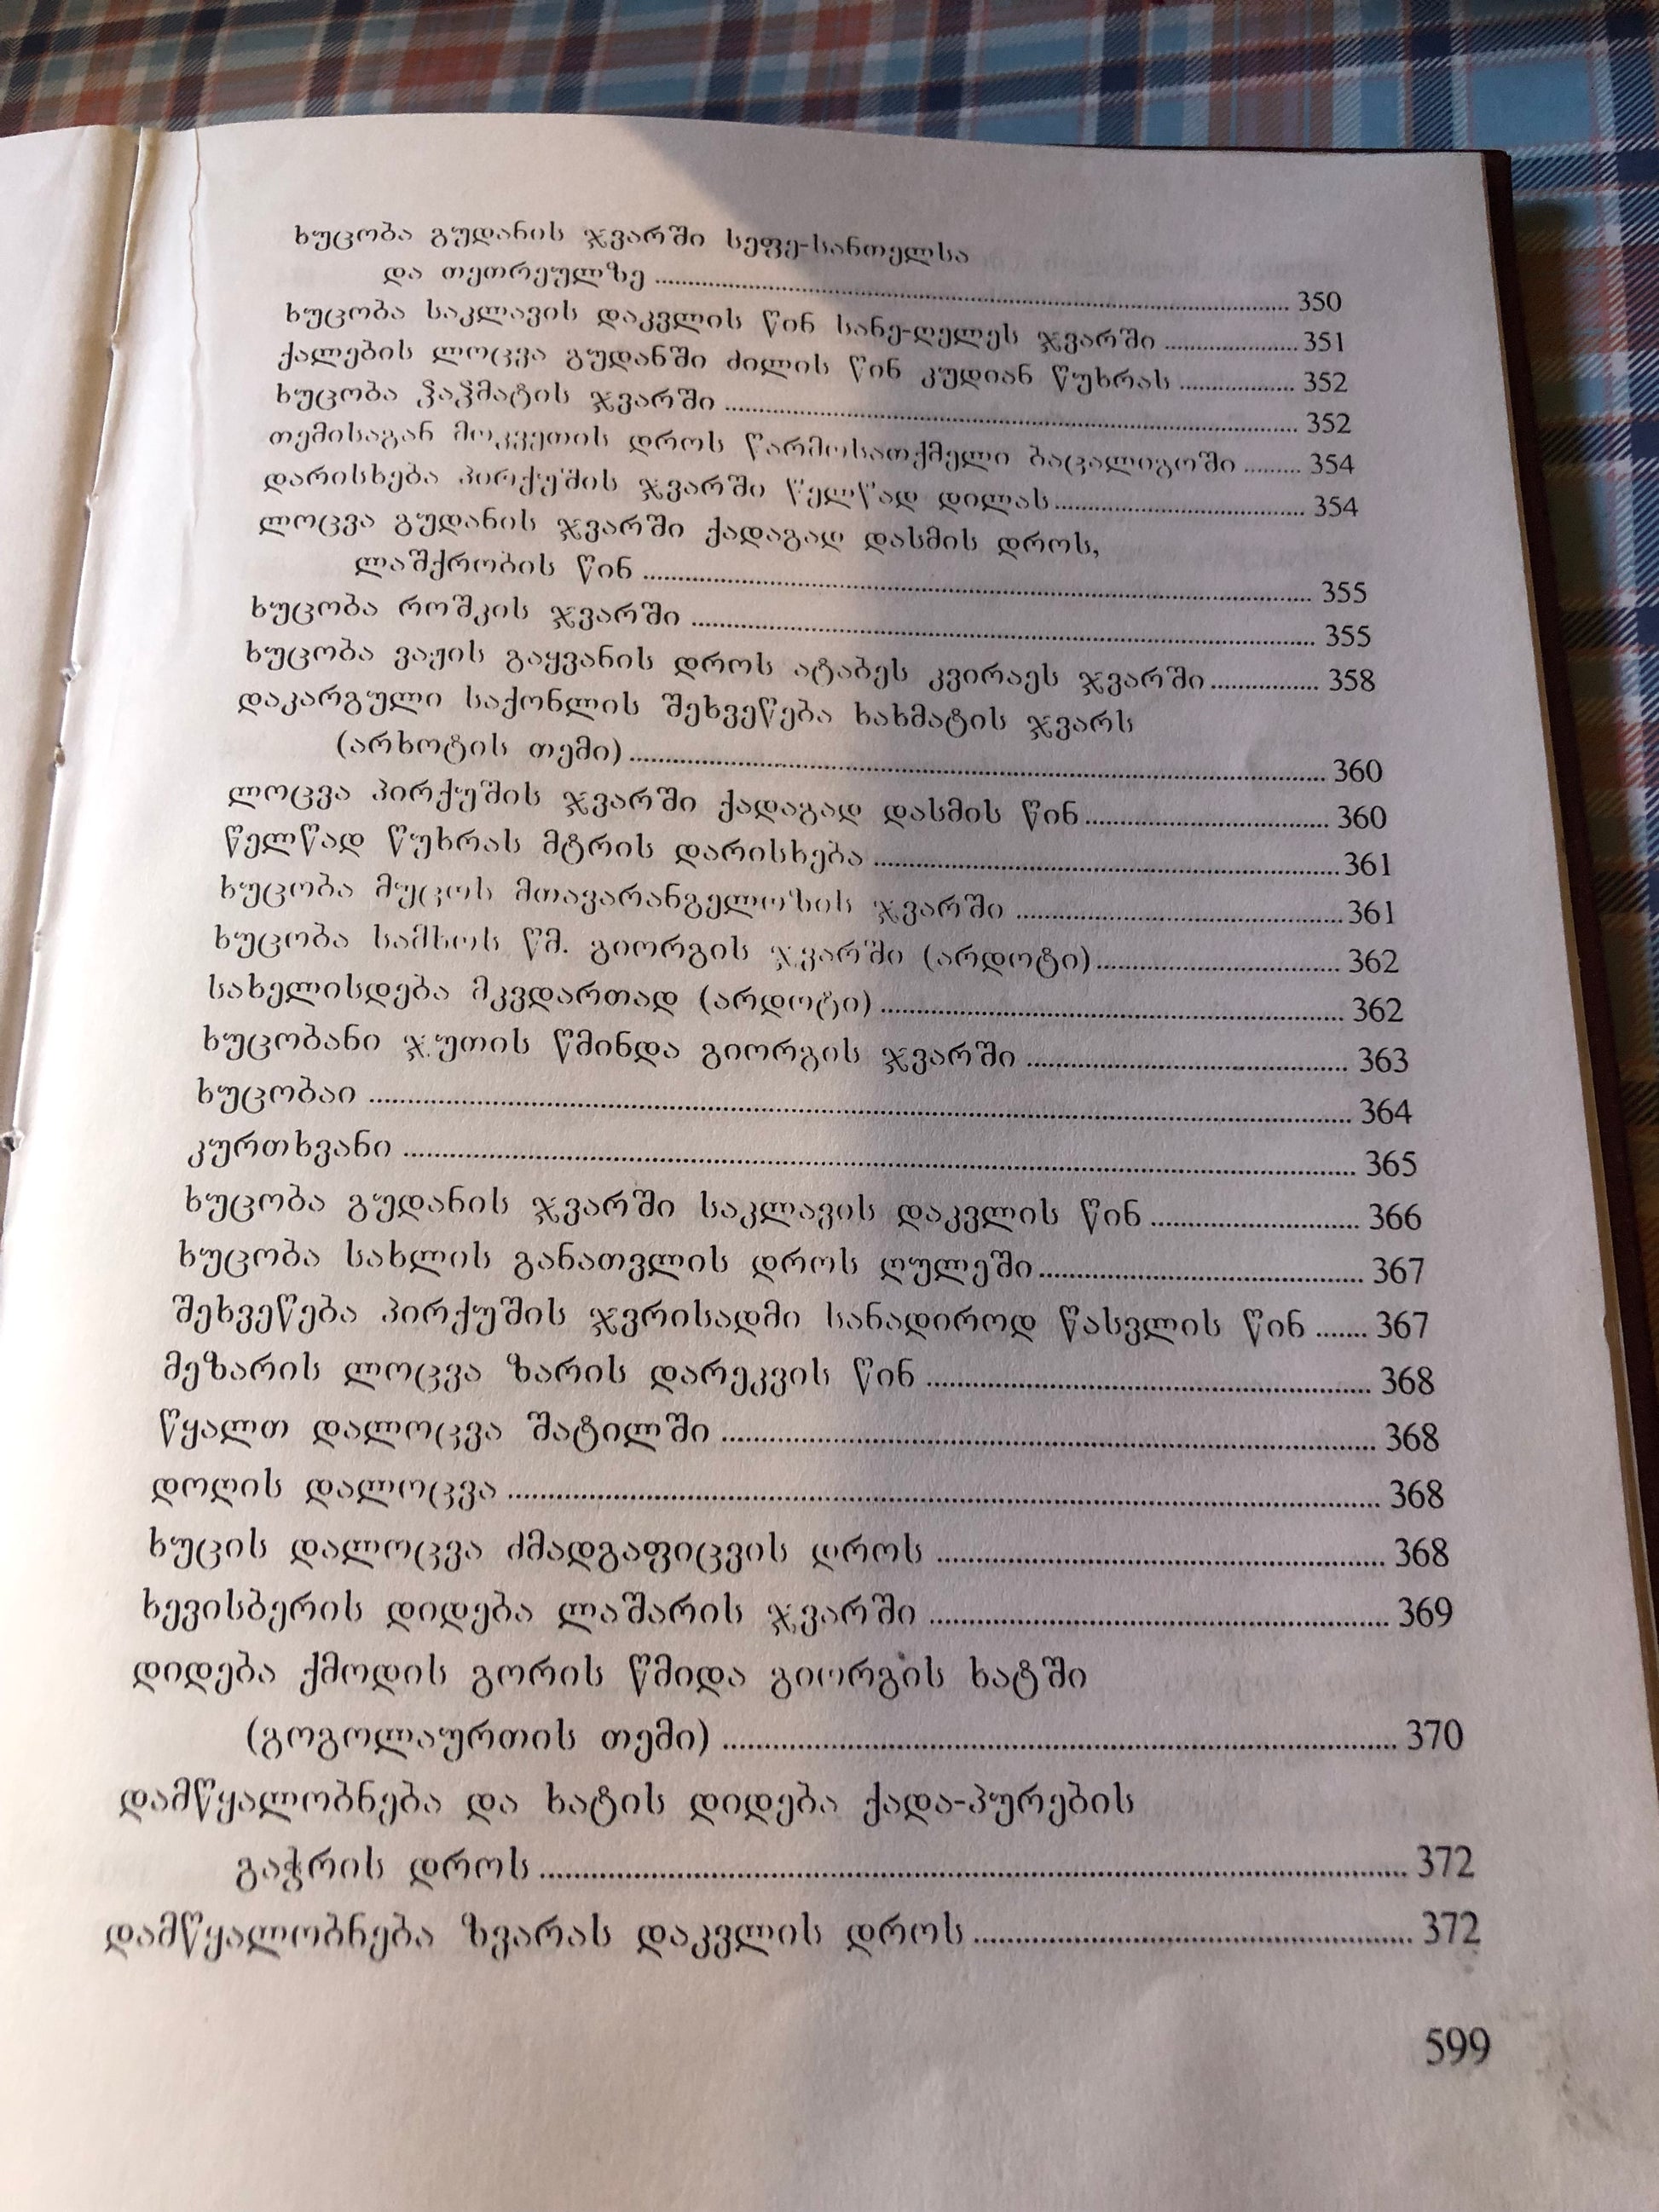 ხუცობა გუდანის ჯვარში სეფე-სანთელსა
და თეთრეულზე ........ 350
ხუცობა საკლავის დაკვლის წინ სანე-ღელეს ჯვარში ........ 351
ქალების ლოცვა გუდანში ძილის წინ კუდიან წუხრას ........ 352
ხუცობა ჴაჴმატის ჯვარში ........ 352
თემისაგან მოკვეთის დროს წარმოსათქმელი ბაცალიგოში ........ 354
დარისხება პირქუშის ჯვარში წელწად დილას ........ 354
ლოცვა გუდანის ჯვარში ქადაგად დასმის დროს,
ლაშქრობის წინ ........ 355
ხუცობა როშკის ჯვარში ........ 355
ხუცობა ვაჟის გაყვანის დროს ატაბეს კვირაეს ჯვარში ........ 358
დაკარგული საქონლის შეხვეწება ხახმატის ჯვარს
(არხოტის თემი) ........ 360
ლოცვა პირქუშის ჯვარში ქადაგად დასმის წინ ........ 360
წელწად წუხრას მტრის დარისხება ........ 361
ხუცობა მუცოს მთავარანგელოზის ჯვარში ........ 361
ხუცობა სამხოს წმ. გიორგის ჯვარში (არდოტი) ........ 362
სახელისდება მკვდართად (არდოტი) ........ 362
ხუცობანი ჯუთის წმინდა გიორგის ჯვარში ........ 363
ხუცობაი ........ 364
კურთხვანი ........ 365
ხუცობა გუდანის ჯვარში საკლავის დაკვლის წინ ........ 366
ხუცობა სახლის განათვლის დროს ღულეში ........ 367
შეხვეწება პირქუშის ჯვრისადმი სანადიროდ წასვლის წინ ........ 367
მეზარის ლოცვა ზარის დარეკვის წინ ........ 368
წყალთ დალოცვა შატილში ........ 368
დოღის დალოცვა ........ 368
ხუცის დალოცვა ძმადგაფიცვის დროს ........ 368
ხევისბერის დიდება ლაშარის ჯვარში ........ 369
დიდება ქმოდის გორის წმიდა გიორგის ხატში
(გოგოლაურთის თემი) ........ 370
დამწყალობნება და ხატის დიდება ქადა-პურების
გაჭრის დროს ........ 372
დამწყალობნება ზვარას დაკვლის დროს ........ 372
599